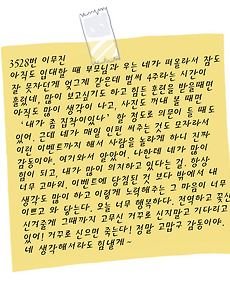 3528번 이무진
아직도 입대할 때 부모님과 우는 네가 떠올라서 잠도
잘 못자던게 엊그제 같은데 벌써 4주라는 시간이
흘렀네, 많이 보고싶기도 하고 힘든 훈련을 받을때면
아직도 많이 생각이 나고, 사진도 꺼내 볼 때면
'내가 좀 집착이있나' 할 정도로 의문이 들 때도
있어, 근데 네가 매일 인편 써주는 것도 모자라서
이런 이벤트까지 해서 사람을 놀라게 하니 진짜
감동이야. 여기와서 않았어, 나한테 네가 많이
힘이 되고, 내가 많이 의지하고 있다는 걸. 항상
너무 고마워, 이벤트에 당첨된 것 보다 밖에서 내
생각도 많이 하고 이렇게 노력해주는 그 마음이 너무
이쁘고 와 닿는다. 오늘 너무 행복하다. 전역하고 꽃신
신겨줄게 그때까지 고무신 거꾸로 신지말고 기다리고
있어! 거꾸로 신으면 죽는다! 정말 고맙구 감동이야.
네 생각해서라도 힘낼게~